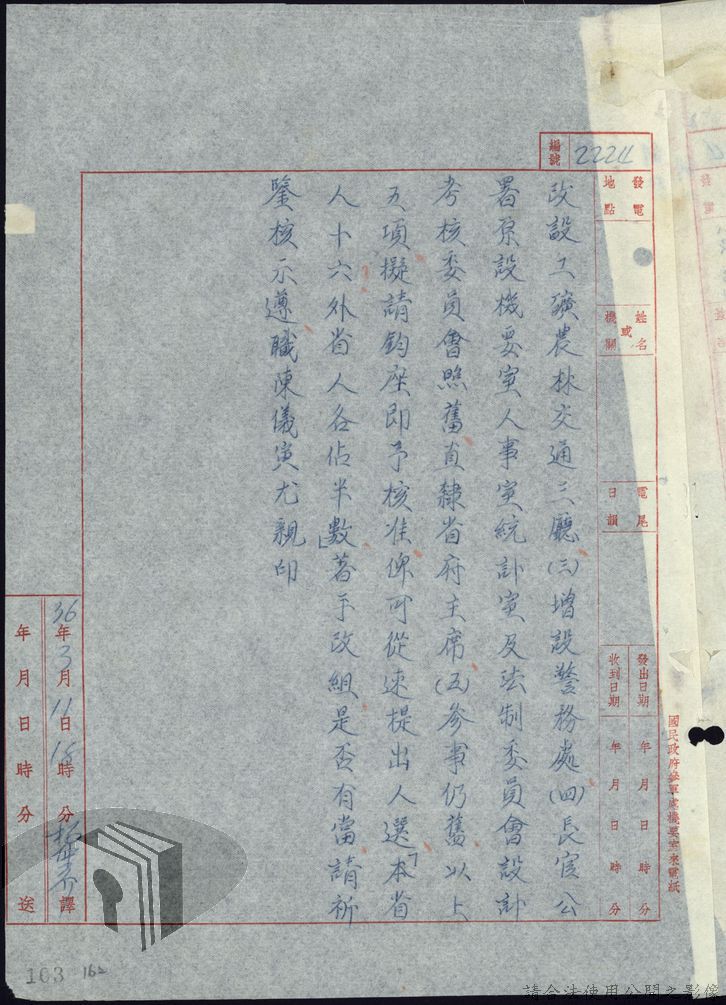 編號 2224
發電地點
姓名或機關
電尾日韻
發出日期 年 月 日 時 分
收到日期 年 月 日 時 分
國民政府參軍處機要室來電紙
改設工礦農林交通三廳(三)增設警務處(四)長官公
署原設機要室人事室統計室及法制委員會設計
考核委員會照舊直隸省府主席(五)參事仍舊以上
五項擬請鈞座即予核准俾可從速提出人選「本省
人十六外省人各佔半數」著手改組是否有當請祈
鑒核示遵職陳儀寅尤親印
36年3月11日18時 分 譯
年 月 日 時 分 送
103 162
請合法使用公開之影像